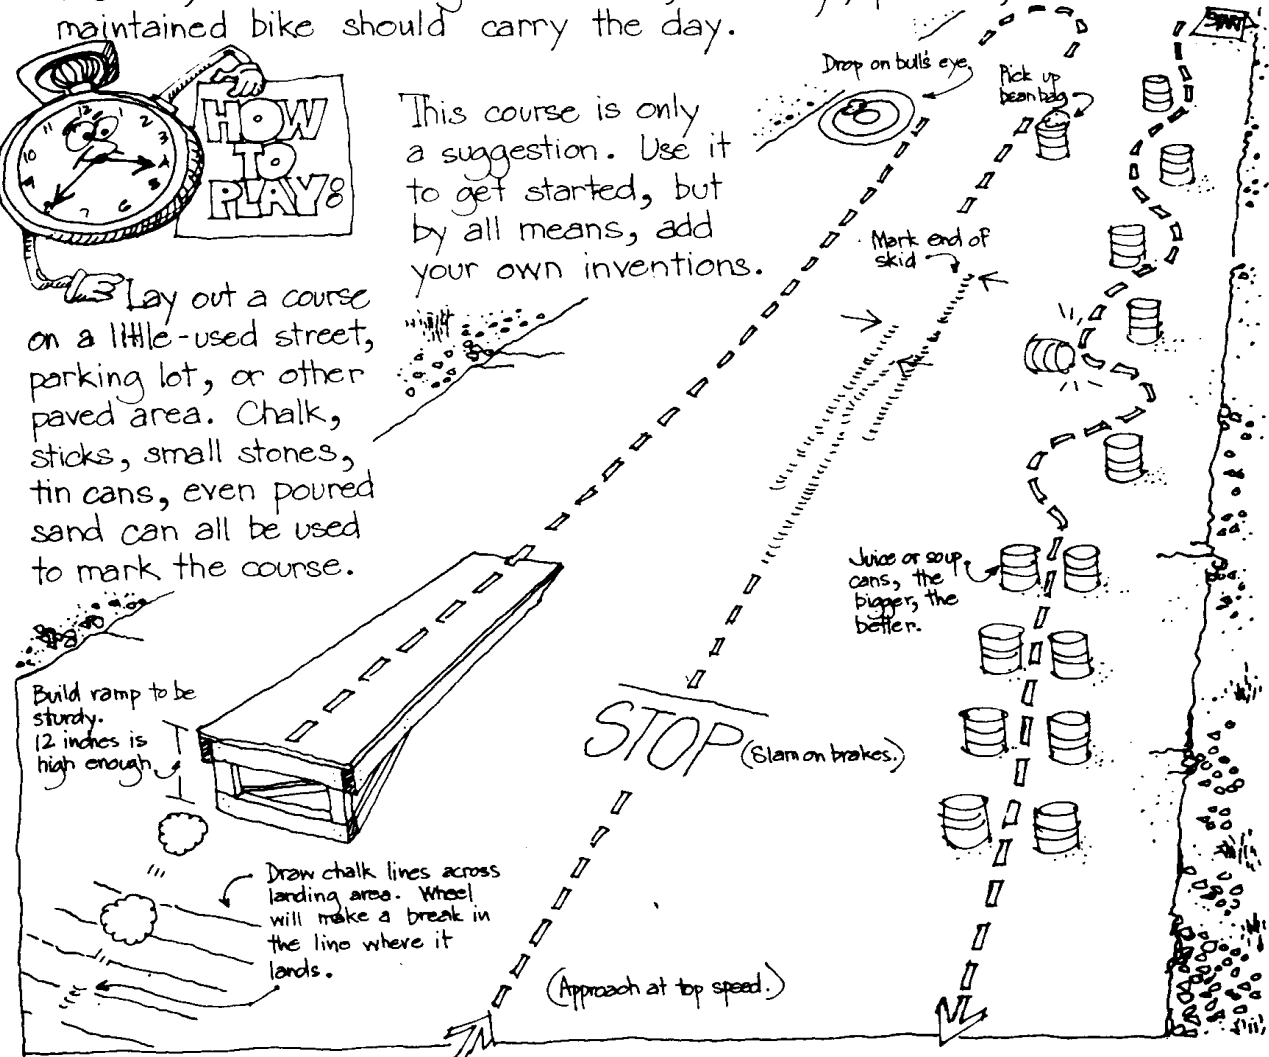 maintained bike should carry the day.
HOW
TO
PLAY:
This course is only
a suggestion. Use it
to get started, but
by all means, add
your own inventions.
Lay out a course
on a little-used street,
parking lot, or other
paved area. Chalk,
sticks, small stones,
tin cans, even poured
sand can all be used
to mark the course.
Drop on bull's eye
Pick up
bean bag
START
Mark end of
skid
Juice or soup
cans, the
bigger, the
better.
Build ramp to be
sturdy.
12 inches is
high enough
STOP (Slam on brakes.)
Draw chalk lines across
landing area. Wheel
will make a break in
the line where it
lands.
(Approach at top speed.)